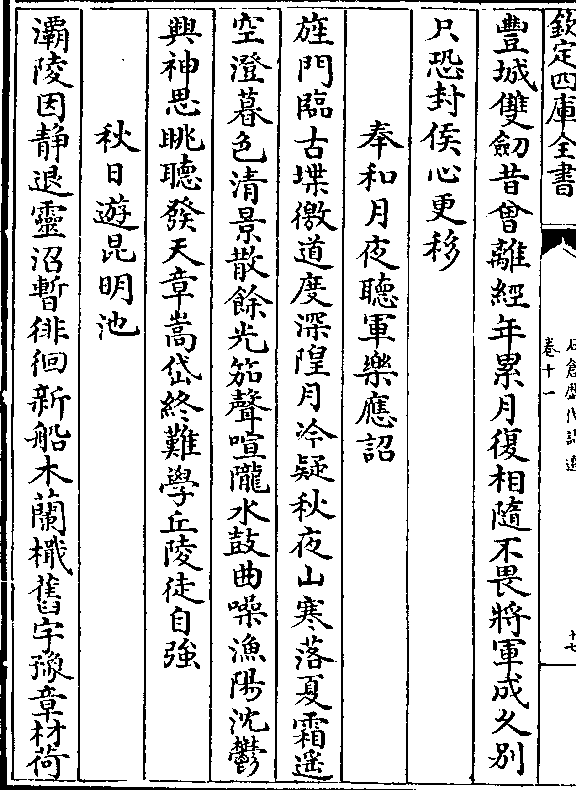 欽定四庫全書
卷十一
石倉歷代詩選
十七
豐城雙劒昔曾離經年累月復相隨不畏將軍成久别
只恐封侯心更移
奉和月夜聽軍樂應詔
旌門臨古堞徼道度深隍月冷疑秋夜山寒落夏霜遥
空澄暮色清景散餘光笳聲喧隴水鼓曲噪漁陽沈鬱
興神思眺聽發天章嵩岱終難學丘陵徒自強
秋日遊昆明池
灞陵因静退靈沼暫徘徊新船木蘭檝舊宇豫章材荷